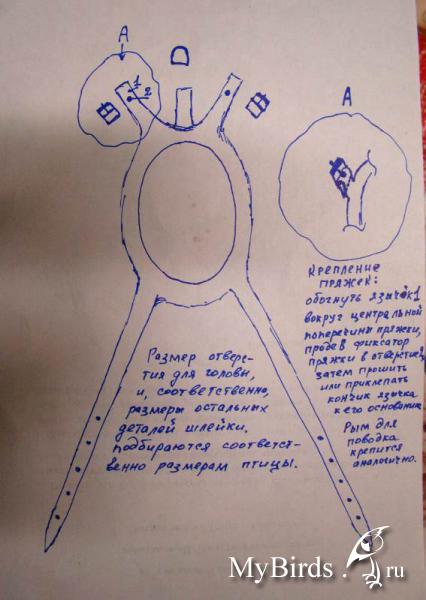 А
1
2
А
Крепление
пряжек:
обогнуть язычок 1
вокруг центральной
поперечины пряжки,
продев фиксатор
пряжки в отверстие 2,
затем прошить
или приклепать
кончик язычка
к его основанию.
Рым для
поводка
крепится
аналогично.
Размер отверс-
тия для головы,
и, соответственно,
размеры остальных
деталей шлейки.
подбираются соответст-
венно размерам птицы.
MyBirds.ru